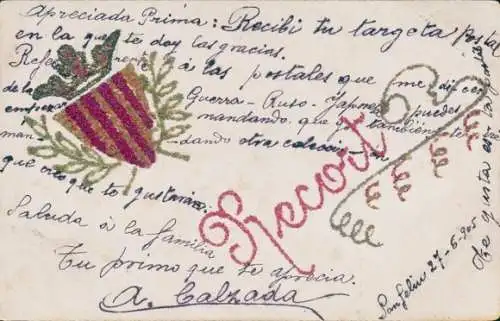 Apreciada Prima: Recibi tu targeta postal
en la que te doy las gracias.
Referente à las postales que me dices
de la Guerra-Ruso-Japonesa puedes
mandando que yo tambien te
mandando otra coleccion
que creo que te gustarán.
Saluda à la familia
Tu primo que te aprecia.
A. Calzada
Recort
San feliu 27-6-905
Te gusta esta